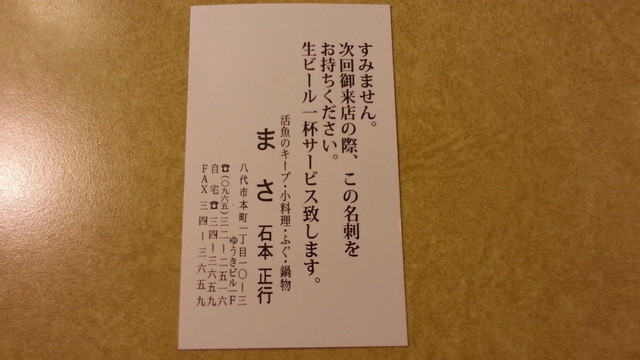 すみません。
次回御来店の際、この名刺を
お持ちください。
生ビール一杯サービス致します。
活魚のキープ・小料理・ふぐ・鍋物
まさ 石本 正行
八代市本町一丁目一〇ー三
ゆうきビル一F
☎(〇九六五)三二ー二五一六
自宅☎三四ー三六五九
FAX三四ー三六五九